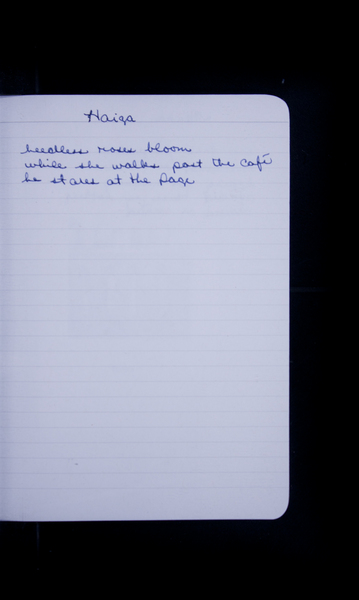 Haiga
heedless roses bloom
while she walks past the café
he stares at the page